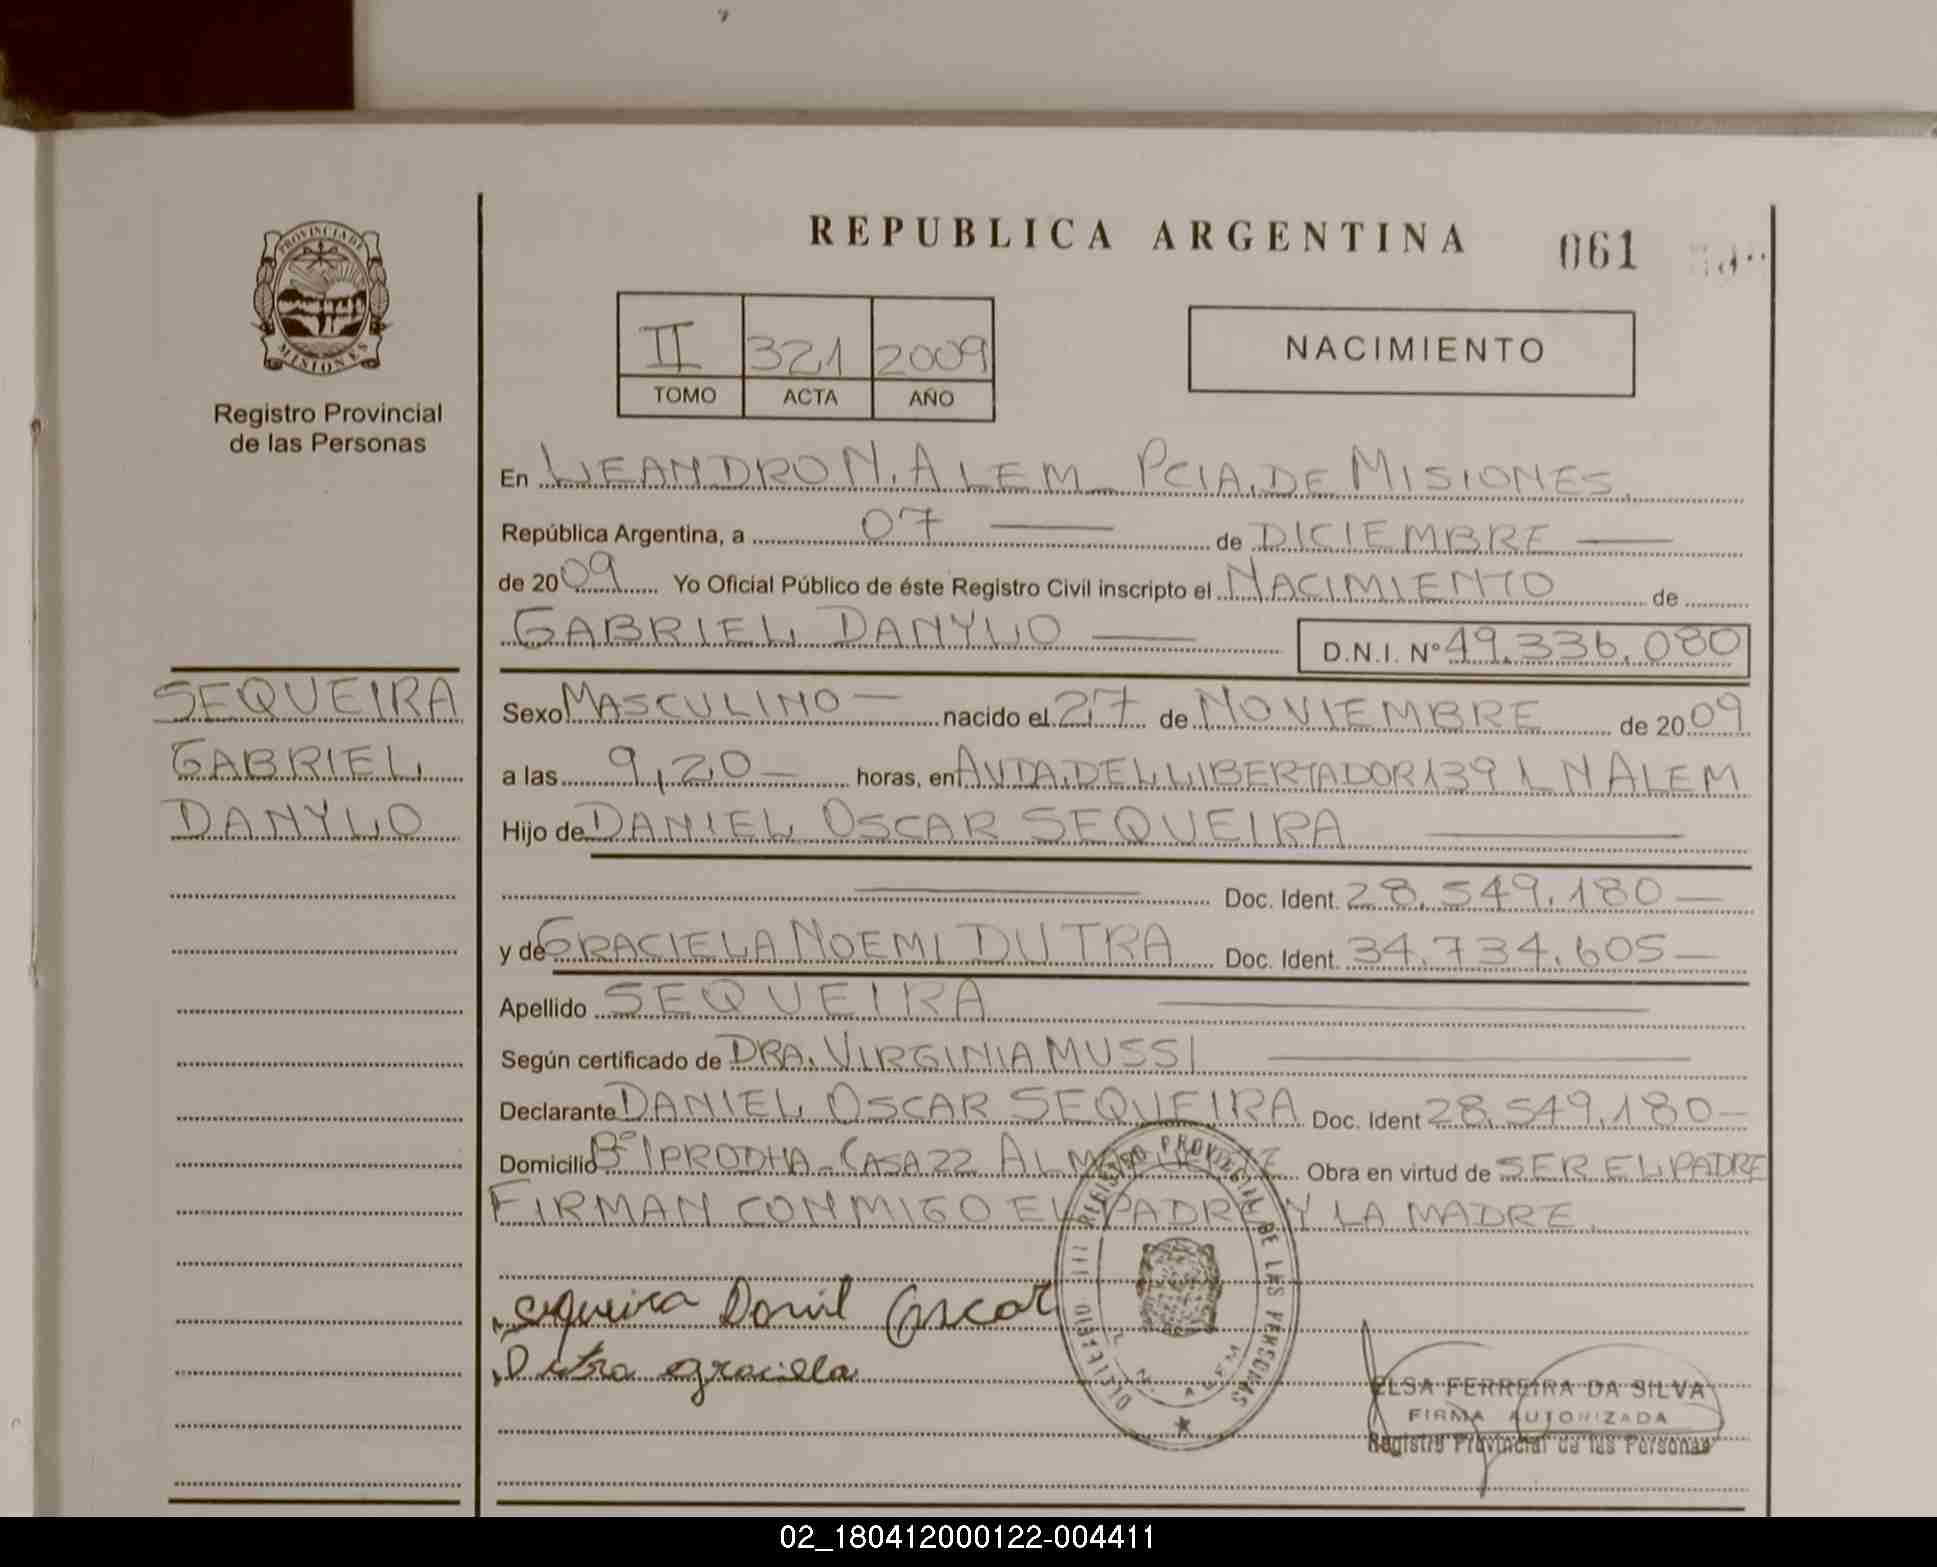 REPUBLICA ARGENTINA
061
PROVINCIA DE
MISIONES
Registro Provincial
de las Personas
II 321 2009
TOMO ACTA AÑO
NACIMIENTO
En LEANDRO N. ALEM - PCIA. DE MISIONES.
República Argentina, a 07 — de DICIEMBRE —
de 2009 Yo Oficial Público de éste Registro Civil inscripto el NACIMIENTO de
GABRIEL DANYLO — D.N.I. Nº 49.336.080
SEQUEIRA
GABRIEL
DANYLO
Sexo MASCULINO — nacido el 27 de NOVIEMBRE de 2009
a las 9,20 — horas, en AVDA. DEL LIBERTADOR 139 L N ALEM
Hijo de DANIEL OSCAR SEQUEIRA —
— Doc. Ident. 28.549.180 —
y de GRACIELA NOEMI DUTRA Doc. Ident. 34.734.605 —
Apellido SEQUEIRA —
Según certificado de DRA. VIRGINIA MUSSI —
Declarante DANIEL OSCAR SEQUEIRA Doc. Ident 28.549.180 —
Domicilio Bº IPRODHA - CASA 22 Obra en virtud de SER EL PADRE
FIRMAN CONMIGO EL PADRE Y LA MADRE.
Sequeira Daniel Oscar
Dutra graciela
REGISTRO PROVINCIAL DE LAS PERSONAS
L. N. ALEM
ELSA FERREIRA DA SILVA
FIRMA AUTORIZADA
Registro Provincial de las Personas
02_180412000122-004411